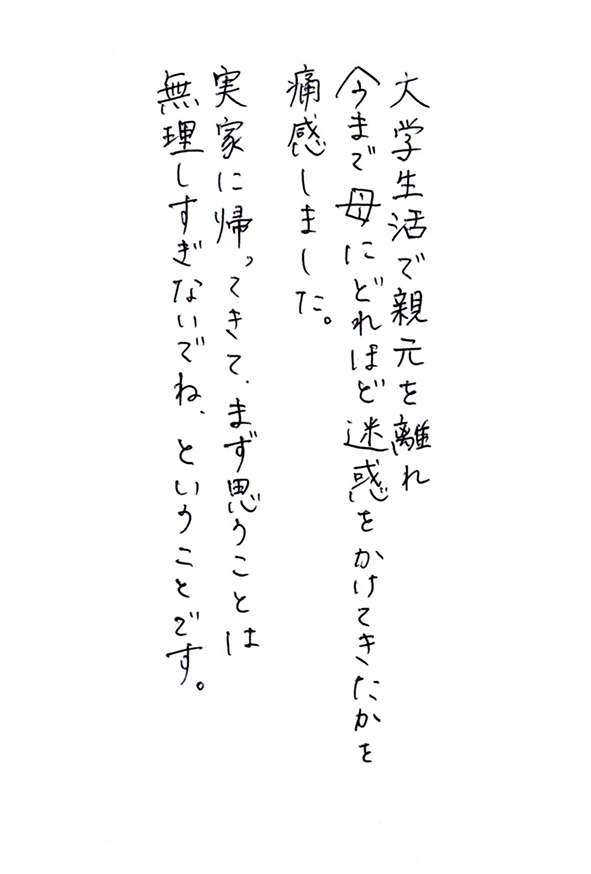 大学生活で親元を離れ
今まで母にどれほど迷惑をかけてきたかを
痛感しました。
実家に帰ってきて、まず思うことは
無理しすぎないでね、ということです。